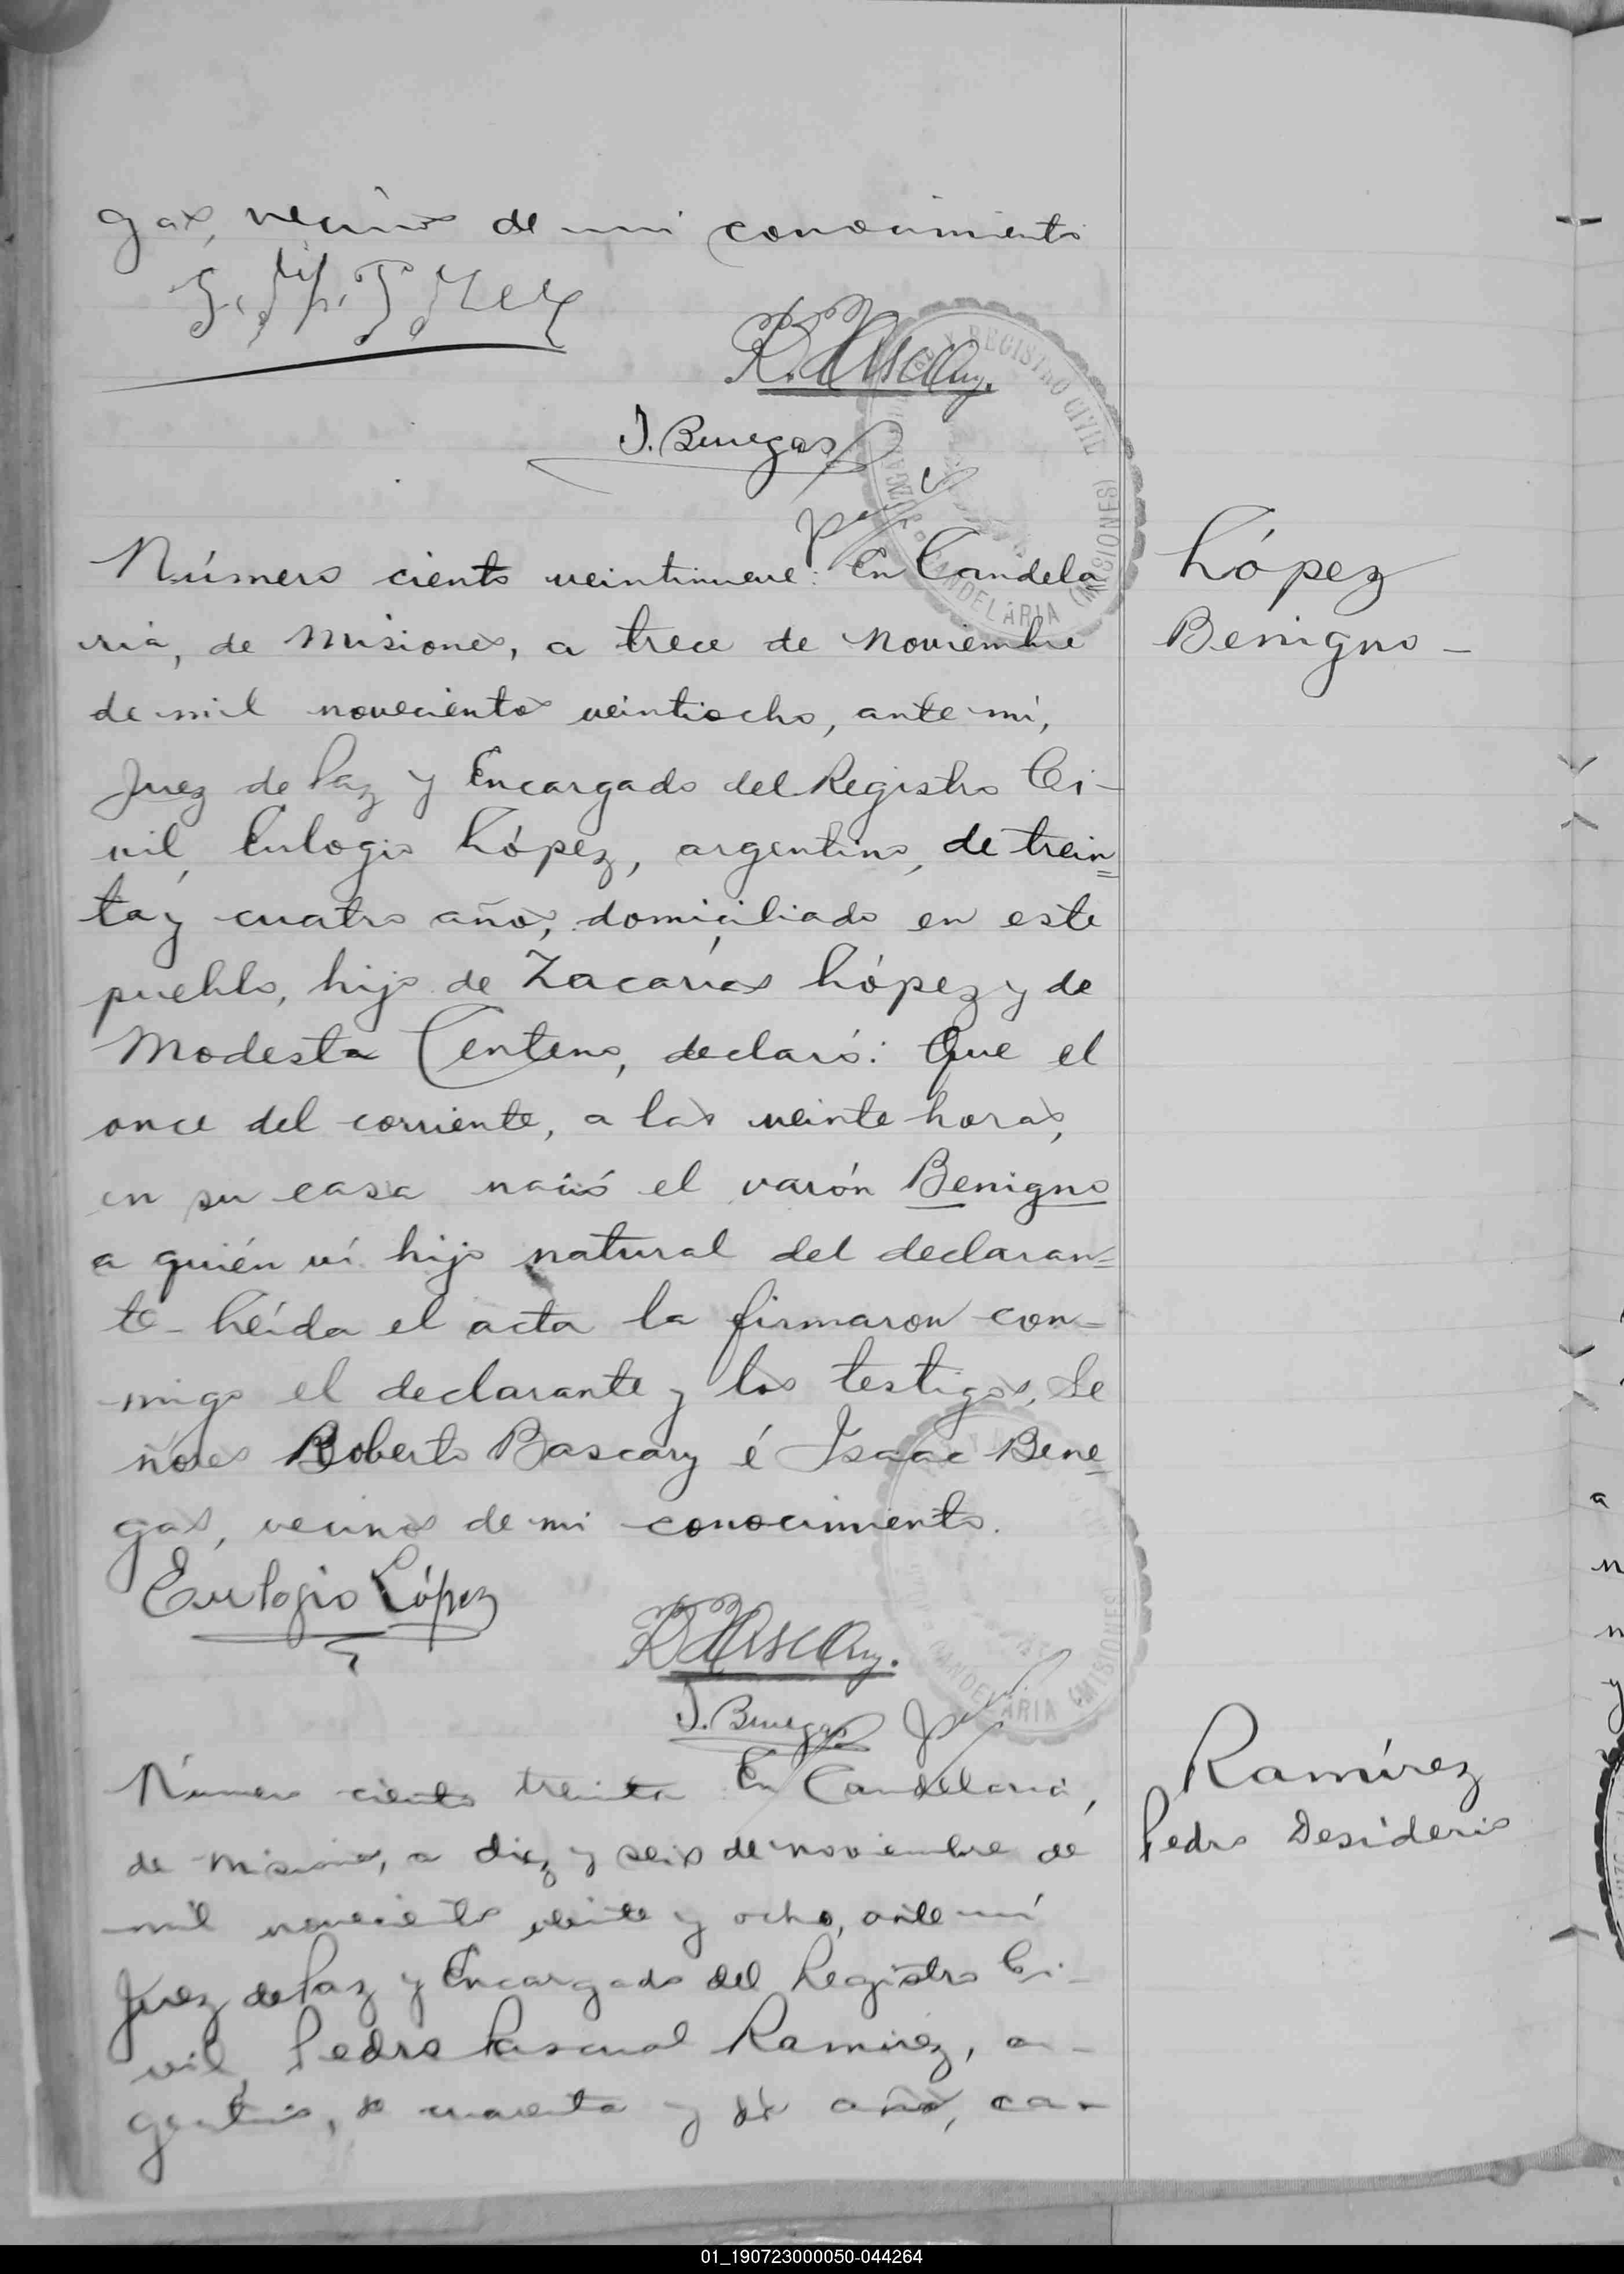 gas, vecinos de mi conocimiento
R. Bascary.
I. Benegas
REGISTRO CIVIL
CANDELARIA (MISIONES)
Número ciento veintinueve: En Candela
ria, de Misiones, a trece de Noviembre
de mil novecientos veintiocho, ante mí,
Juez de Paz y Encargado del Registro Ci-
vil, Eulogio López, argentino, de trein=
ta y cuatro años, domiciliado en este
pueblo, hijo de Zacarías López y de
Modesta Centeno, declaró: Que el
once del corriente, a las veinte horas,
en su casa nació el varón Benigno
a quién ví hijo natural del declaran=
te- Leída el acta la firmaron con-
migo el declarante y los testigos, Se
ñores Roberto Bascary é Isaac Bene=
gas, vecinos de mi conocimiento.
Eulogio López
R. Bascary.
I. Benegas
CANDELARIA (MISIONES)
Número ciento treinta En Candelaria,
de Misiones, a diez y seis de noviembre de
mil novecientos veinte y ocho, ante mí
Juez de Paz y Encargado del Registro Ci-
vil, Pedro Pascual Ramírez, ar-
gentino, de cuarenta y años, ca-
López
Benigno -
Ramírez
Pedro Desiderio
a
n
n
y
01_190723000050-044264